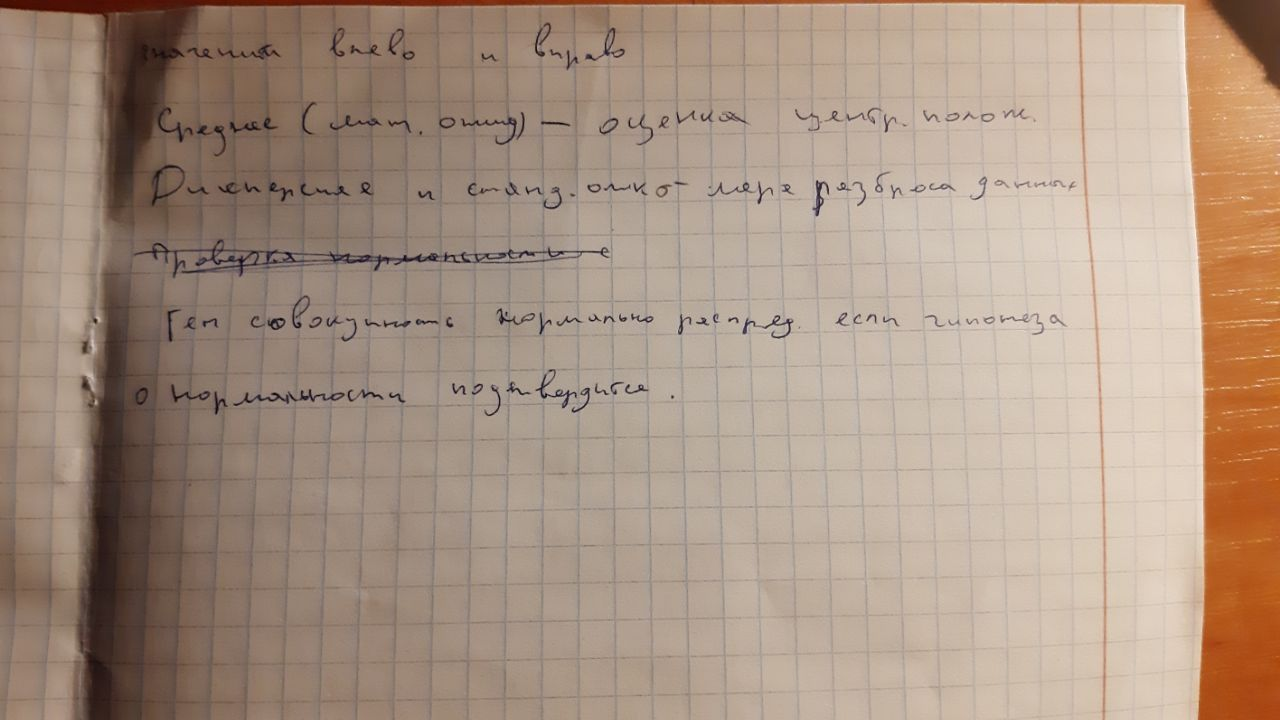 значений влево и вправо
Среднее (мат. ожид) — оценка центр. полож.
Дисперсия и станд. откл - мера разброса данных
Проверка нормальности с
Ген совокупность нормально распред. если гипотеза
о нормальности подтвердится.